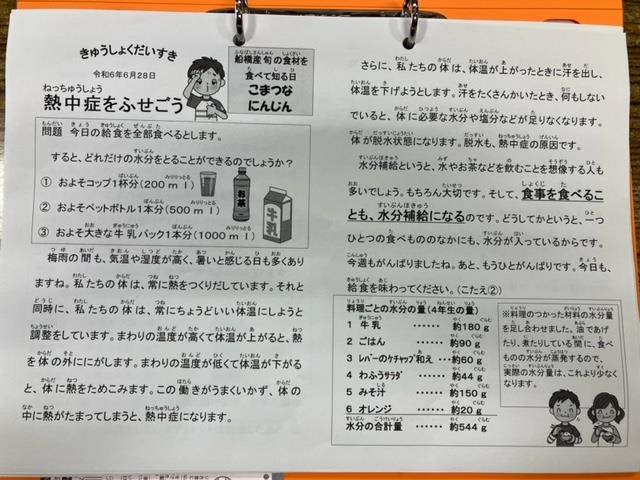 きゅうしょくだいすき
令和6年6月28日
熱中症をふせごう
船橋産旬の食材を
食べて知る日
こまつな
にんじん
問題 今日の給食を全部食べるとします。
すると、どれだけの水分をとることができるのでしょうか?
① およそコップ1杯分(200ml)
② およそペットボトル1本分(500ml)
③ およそ大きな牛乳パック1本分(1000ml)
お茶
牛乳
梅雨の間も、気温や湿度が高く、暑いと感じる日も多くあり
ますね。私たちの体は、常に熱をつくりだしています。それと
同時に、私たちの体は、常にちょうどいい体温にしようと
調整をしています。まわりの温度が高くて体温が上がると、熱
を体の外ににがします。まわりの温度が低くて体温が下がる
と、体に熱をためこみます。この働きがうまくいかず、体の
中に熱がたまってしまうと、熱中症になります。
さらに、私たちの体は、体温が上がったときに汗を出し、
体温を下げようとします。汗をたくさんかいたとき、何もしない
でいると、体に必要な水分や塩分などが足りなくなります。
体が脱水状態になります。脱水も、熱中症の原因です。
水分補給というと、水やお茶などを飲むことを想像する人も
多いでしょう。もちろん大切です。そして、食事を食べるこ
とも、水分補給になるのです。どうしてかというと、一つ
ひとつの食べもののなかにも、水分が入っているからです。
今週もがんばりましたね。あと、もうひとがんばりです。今日も、
給食を味わってください。(こたえ②)
料理ごとの水分の量(4年生の量)
1 牛乳 …… 約180g
2 ごはん …… 約90g
3 レバーのケチャップ和え … 約60g
4 わふうサラダ …… 約44g
5 みそ汁 …… 約150g
6 オレンジ …… 約20g
水分の合計量 …… 約544g
※料理のつかった材料の水分量
を足し合わせました。油であげ
たり、煮たりしている間に、食べ
ものの水分が蒸発するので、
実際の水分量は、これより少なく
なります。